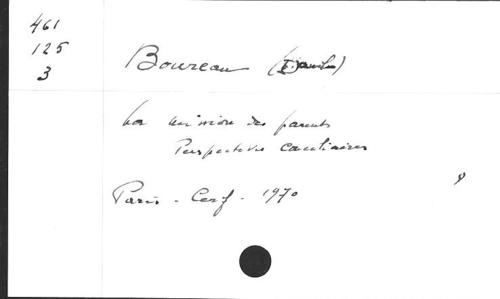 461
125
3
Boureau (Daniel)
La mission des parents
Perspectives conciliaires
Paris - Cerf - 1970